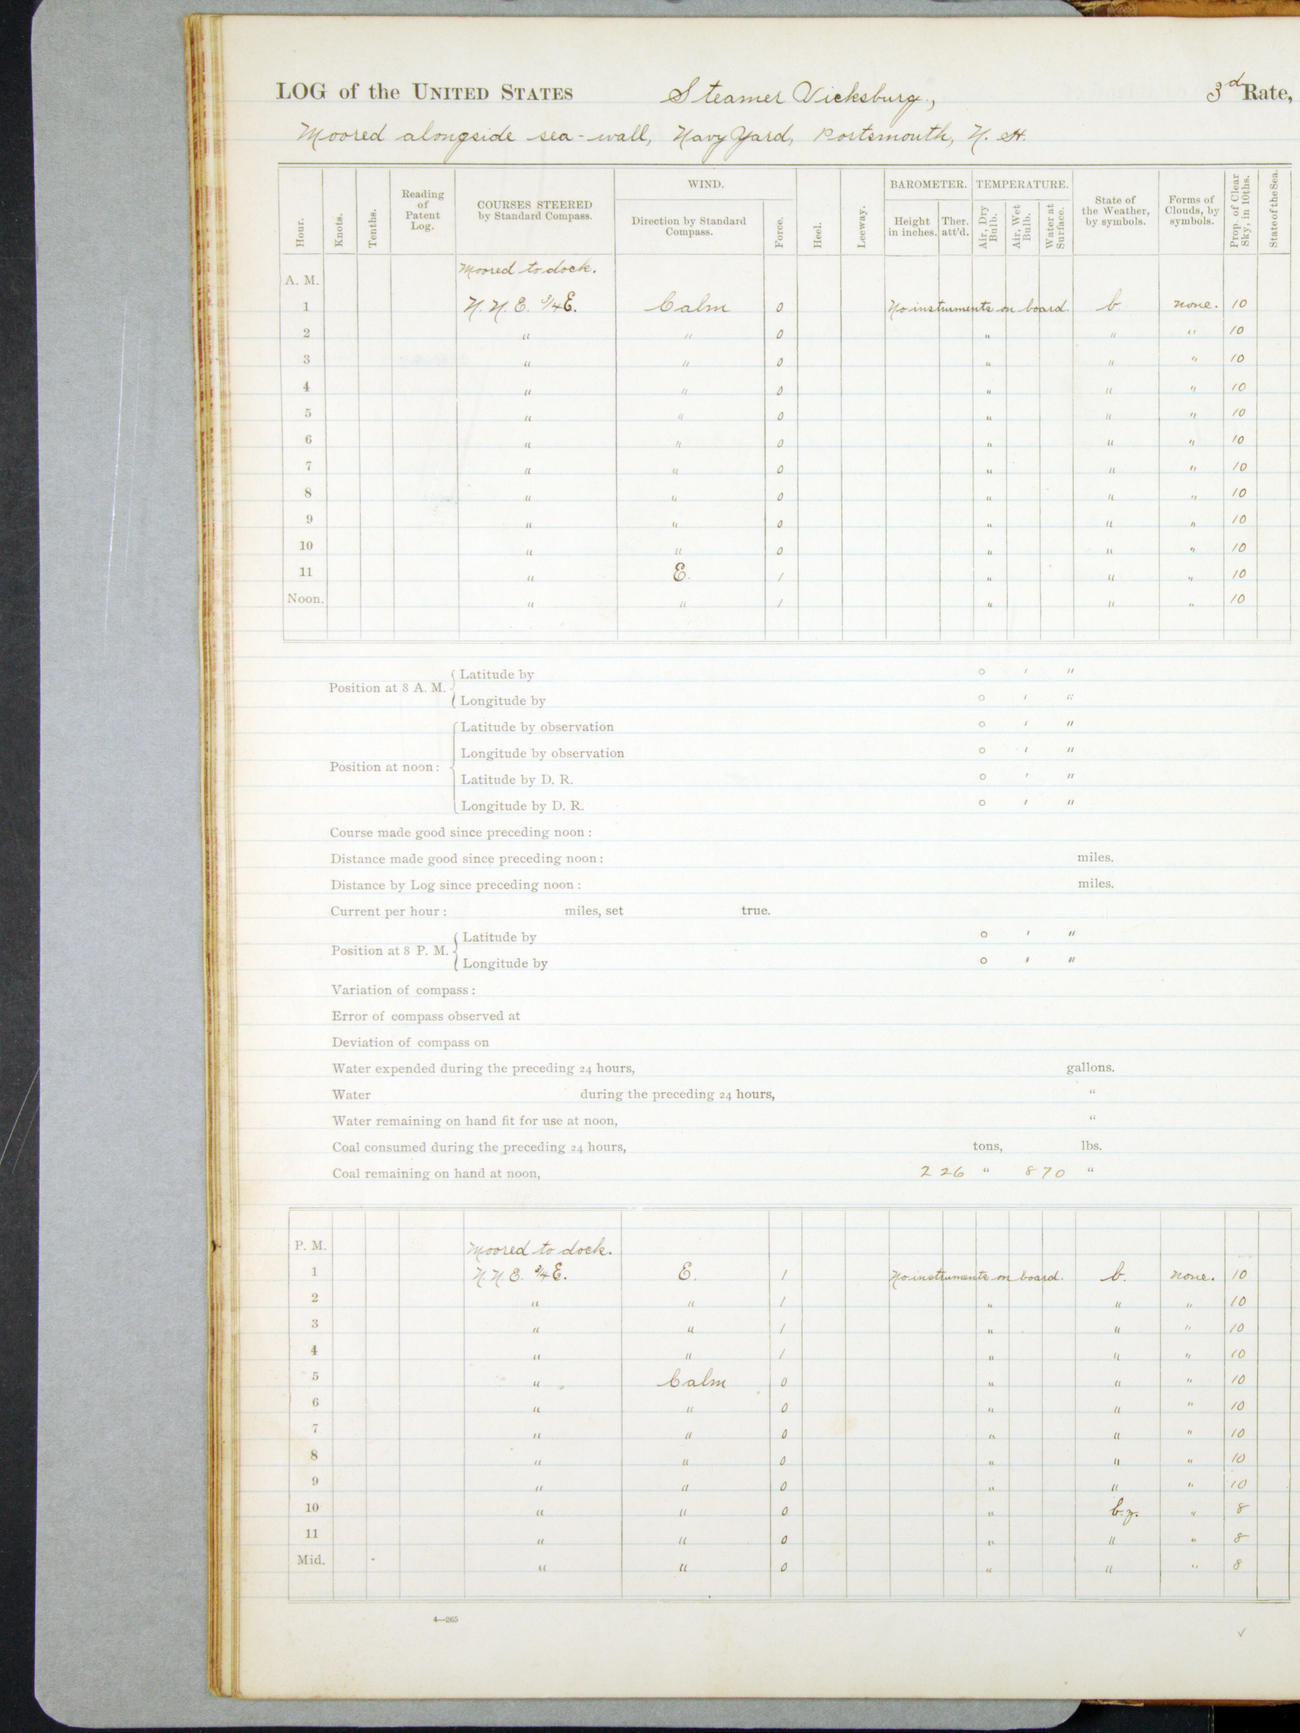 LOG of the UNITED STATES Steamer Vicksburg, 3d Rate,
Moored alongside sea-wall, Navy Yard, Portsmouth, N. H.
Hour. Knots. Tenths. Reading of Patent Log. COURSES STEERED by Standard Compass. WIND. Direction by Standard Compass. Force. Heel. Leeway. BAROMETER. Height in inches. Ther. att'd. TEMPERATURE. Air, Dry Bulb. Air, Wet Bulb. Water at Surface. State of the Weather, by symbols. Forms of Clouds, by symbols. Prop. of Clear Sky, in 10ths. State of the Sea.
A. M. Moored to dock.
1 N. N. E. 3/4 E. Calm 0 No instruments on board. b. none. 10
2 " " 0 " " " 10
3 " " 0 " " " 10
4 " " 0 " " " 10
5 " " 0 " " " 10
6 " " 0 " " " 10
7 " " 0 " " " 10
8 " " 0 " " " 10
9 " " 0 " " " 10
10 " " 0 " " " 10
11 " E. 1 " " " 10
Noon. " " 1 " " " 10
Position at 8 A. M. Latitude by ° ′ ″
Longitude by ° ′ ″
Latitude by observation ° ′ ″
Longitude by observation ° ′ ″
Position at noon:
Latitude by D. R. ° ′ ″
Longitude by D. R. ° ′ ″
Course made good since preceding noon:
Distance made good since preceding noon: miles.
Distance by Log since preceding noon: miles.
Current per hour: miles, set true.
Position at 8 P. M. Latitude by ° ′ ″
Longitude by ° ′ ″
Variation of compass:
Error of compass observed at
Deviation of compass on
Water expended during the preceding 24 hours, gallons.
Water during the preceding 24 hours, "
Water remaining on hand fit for use at noon, "
Coal consumed during the preceding 24 hours, tons, lbs.
Coal remaining on hand at noon, 226 " 870 "
P. M. Moored to dock.
1 N. N. E. 3/4 E. E. 1 No instruments on board. b. none. 10
2 " " 1 " " " 10
3 " " 1 " " " 10
4 " " 1 " " " 10
5 " Calm 0 " " " 10
6 " " 0 " " " 10
7 " " 0 " " " 10
8 " " 0 " " " 10
9 " " 0 " " " 10
10 " " 0 " b.z. " 8
11 " " 0 " " " 8
Mid. " " 0 " " " 8
4—265